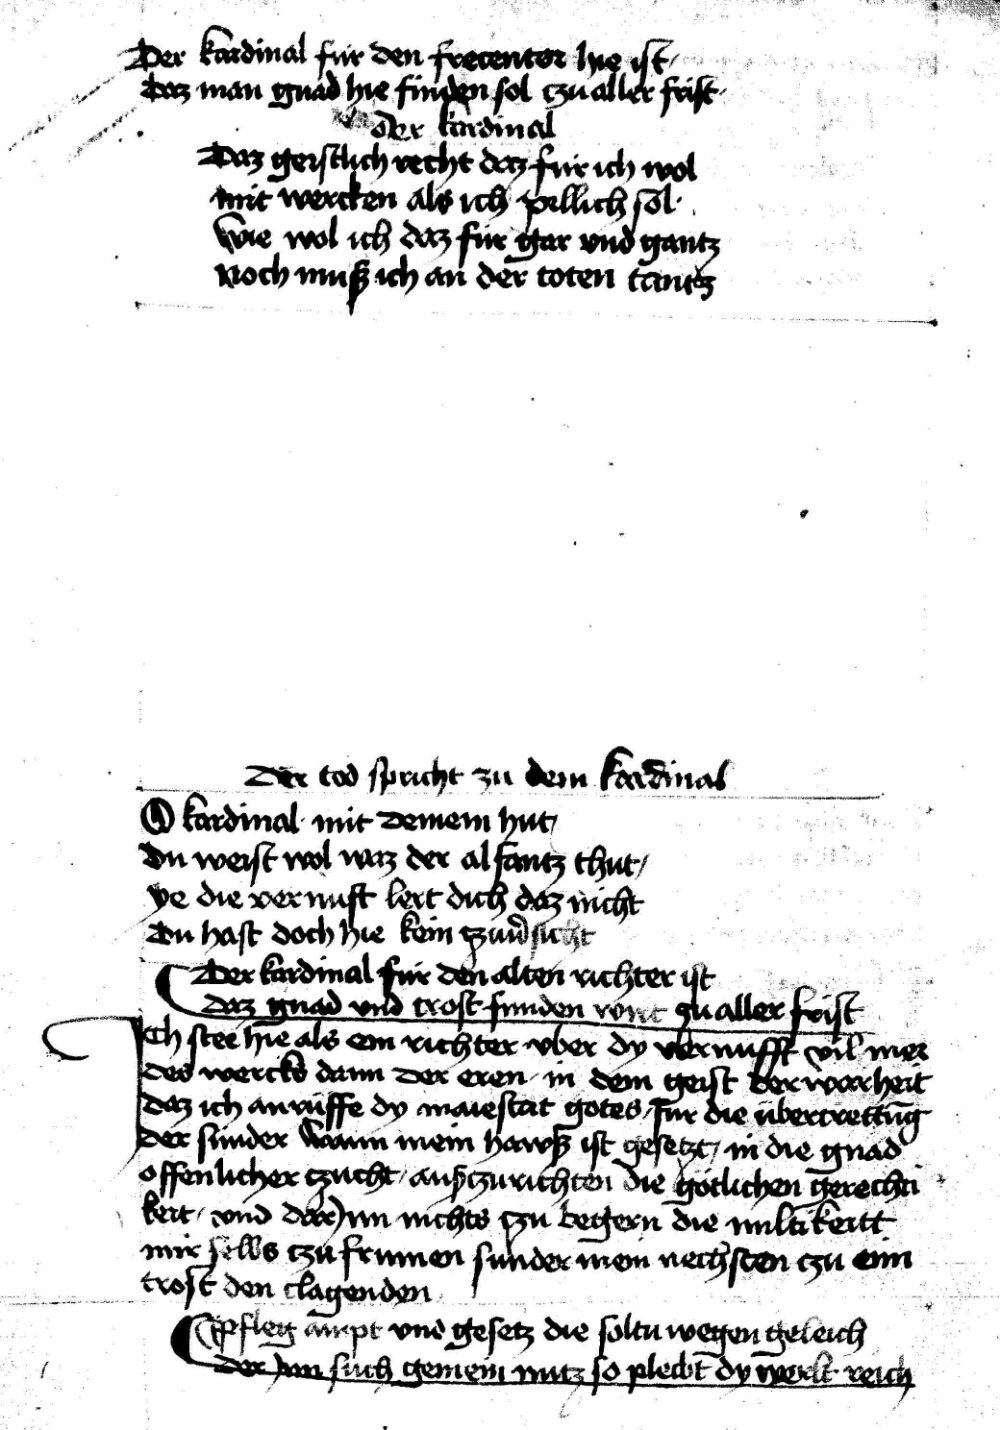 Der kardinal für den frecentor hie ist/
Daz man gnad hie finden sol czu aller frist.
Der kardinal
Daz geistlich recht daz für ich wol
mit wercken als ich pillich sol.
Wie wol ich daz für gar vnd gantz
Noch muß ich an der toten tantz
Der tod spricht zu dem kardinal
O kardinal mit deinem hut/
Du weist wol waz der alfantz thut/
ye die vernuft lert dich daz nicht
Du hast doch hie kein
Der kardinal für den alten richter ist
daz gnad vnd trost funden aller frist
Ich stee hie als ein richter vber dy vernufft vil mer
des wercks dann der eren in dem geist der warheit
daz ich anrüffe dy maiestat gotes/ für die übertrettūg
der sünder Wann mein hawß ist gesetzt/ in die gnad
offenlicher czucht/ außczurichten die götlichen gerechti
keit/ vnd darjnn nichts czu begern die miltikeitt
mir selbs czu frumen sunder mein nechsten czu eim
trost den clagenden
Pfleg ampt vnd gesetz die soltu wegen geleich
such gemein nutz so pleibt dy werlt reich